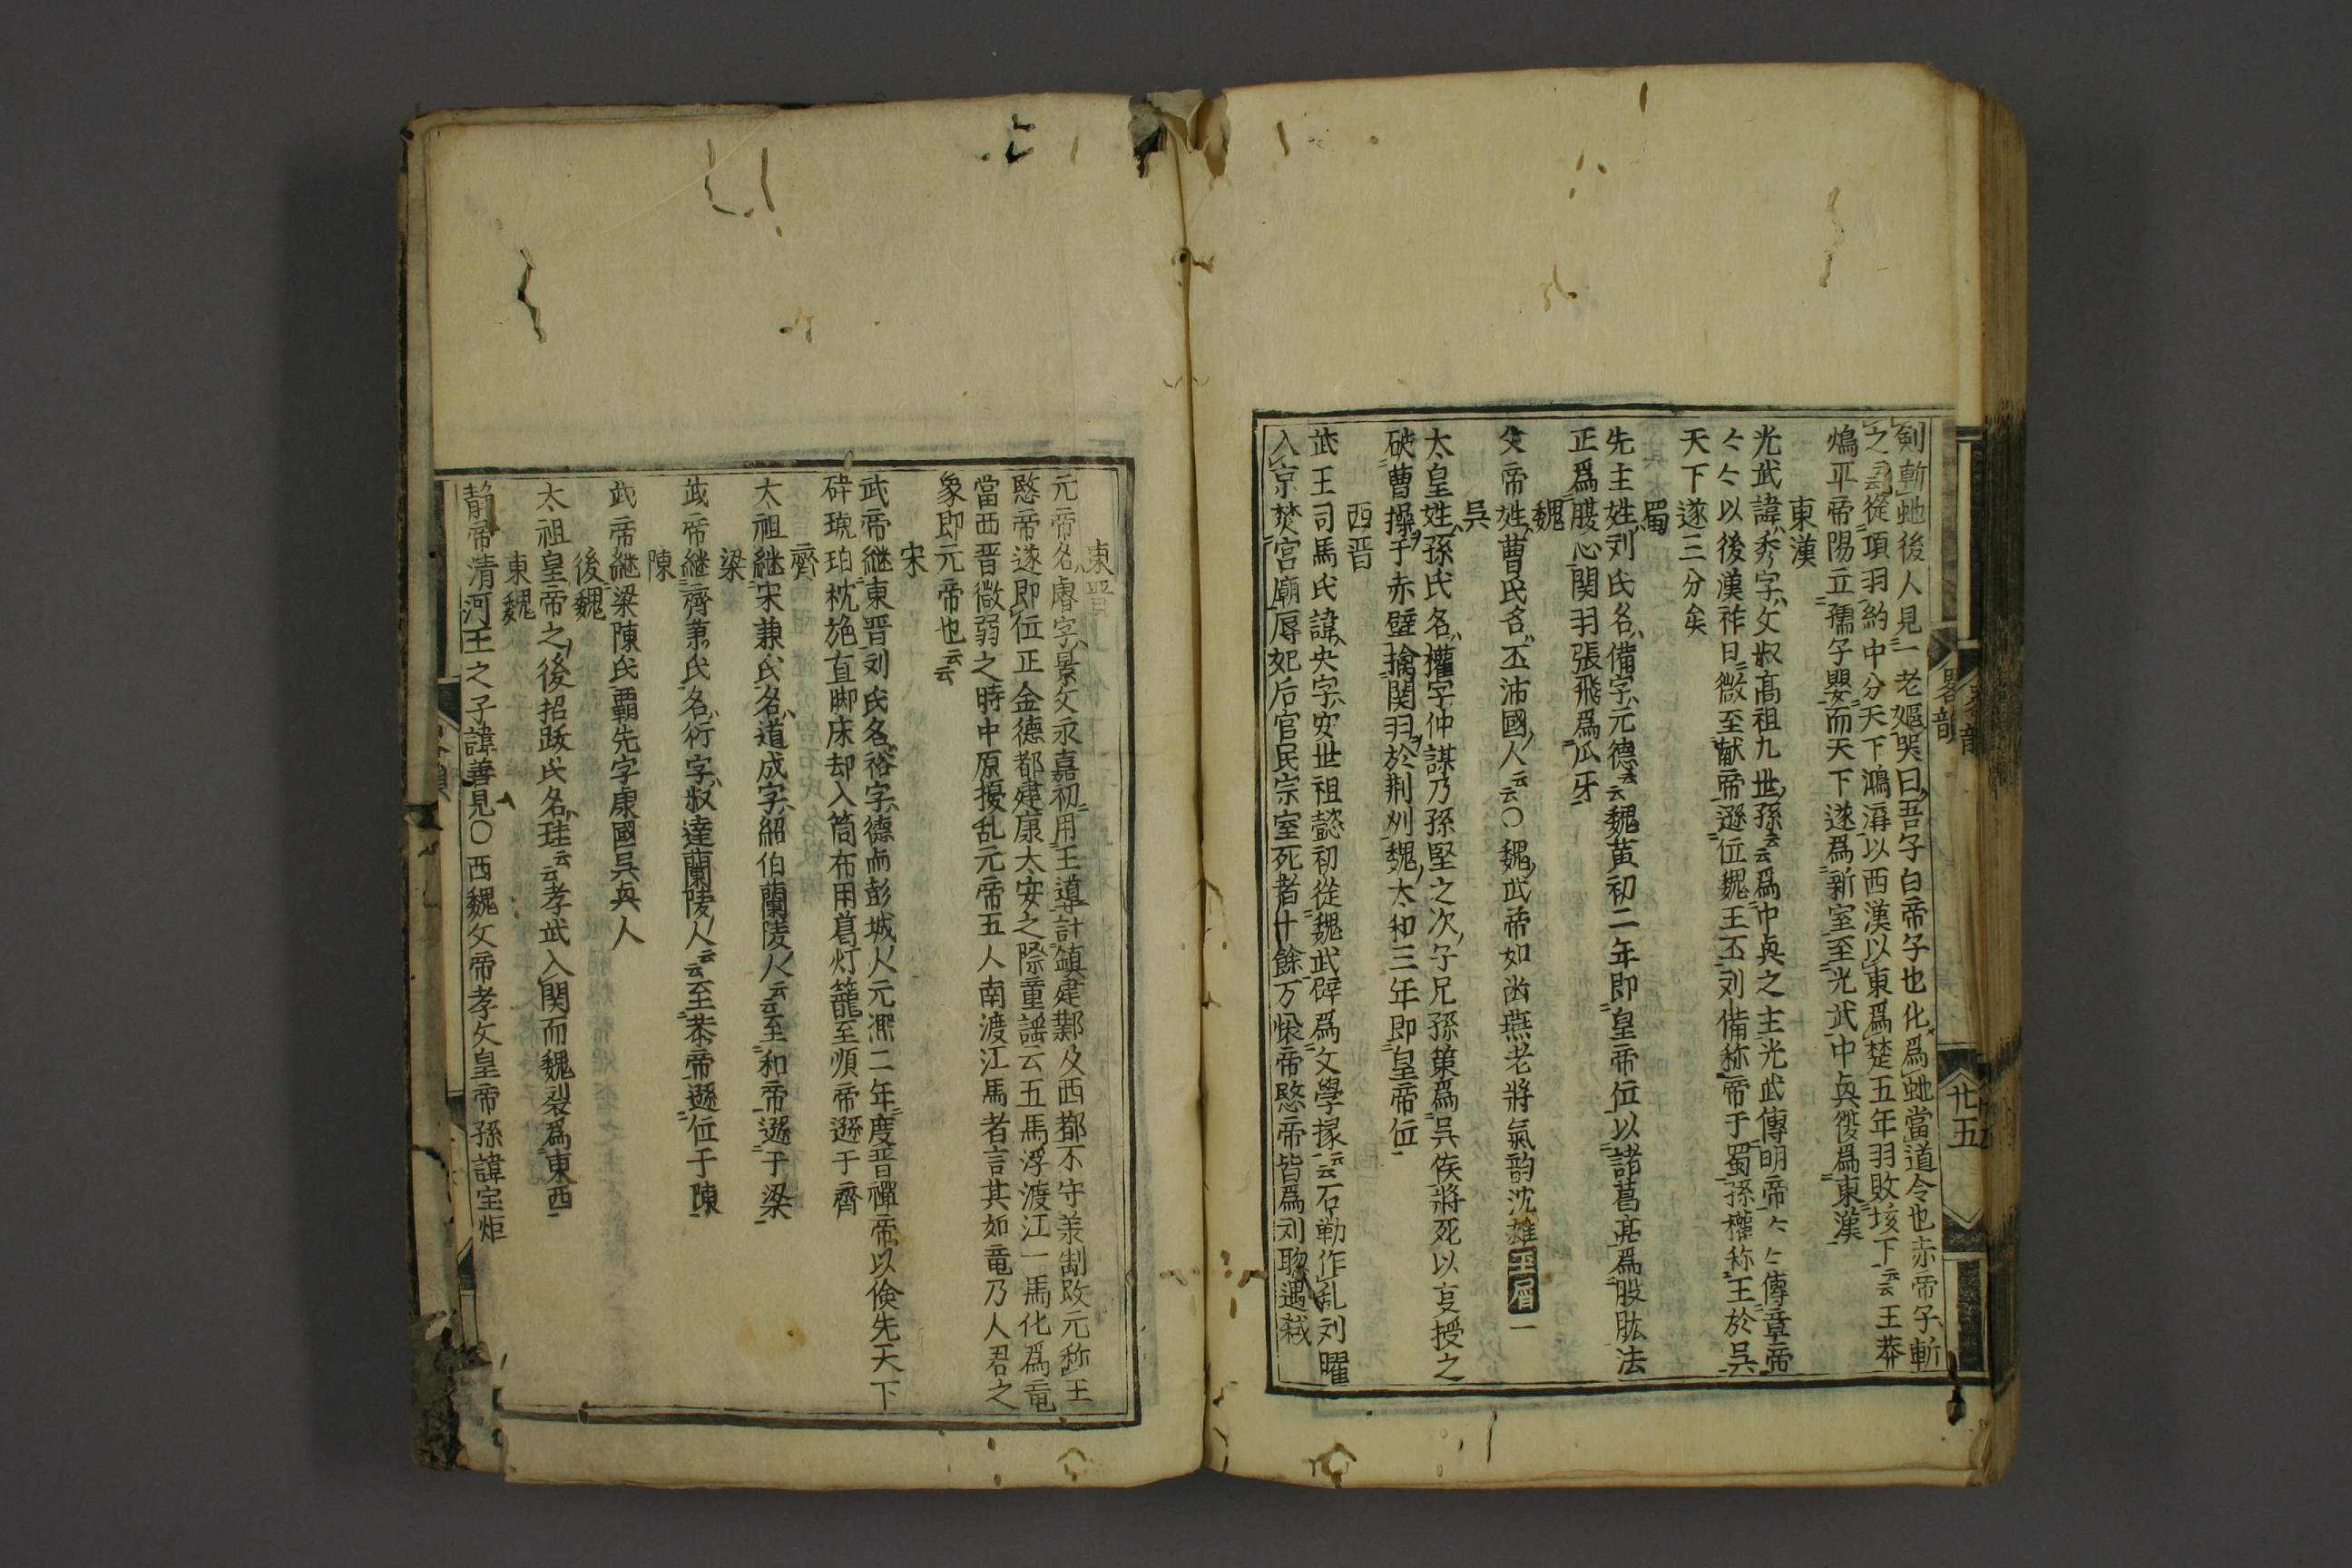 劍斬虵後人見一老嫗哭曰吾子白帝子也化爲虵當道令也赤帝子斬
之云云從項羽約中分天下鴻溝以西漢以東爲楚五年羽敗垓下云云王莽
鴆平帝陽立孺子嬰而天下遂爲新室至光武中㒷復爲東漢
東漢
光武諱秀字文叔髙祖九世孫云云爲中㒷之主光武傳明帝々々傳章帝
々々以後漢祚日微至献帝遜位魏王丕刘備称帝于蜀孫權称王於吳
天下遂三分矣
蜀
先主姓刘氏名備字元德云云魏黄初二年即皇帝位以諸葛亮爲股肱法
正爲腹心関羽張飛爲爪牙
魏
文帝姓曹氏名丕沛國人云云〇魏武帝如幽燕老將氣韵沈雄玉屑一
吳
太皇姓孫氏名權字仲謀乃孫堅之次子兄孫策爲吳侯將死以㕝授之
破曹操于赤壁擒関羽於荆刕魏太和三年即皇帝位
西晋
武王司馬氏諱炎字安世祖懿初從魏武辟爲文學掾云云石勒作乱刘曜
入京焚宮廟辱妃后官民宗室死者廿餘万懐帝愍帝皆爲刘聦遇弑
畧韻
廿五
東晋
元帝名睿字景文永嘉初用王導計鎮建鄴及西都不守羕制改元称王
愍帝遂即位正金德都建康太安之際童謡云五馬浮渡江一馬化爲竜
當西晋微弱之時中原擾乱元帝五人南渡江馬者言其如竜乃人君之
象即元帝也云云
宋
武帝継東晋刘氏名裕字德而彭城人元凞二年度晋禪帝以倹先天下
碎琥珀枕施直脚床却入筒布用葛灯籠至順帝遜于齊
齊
太祖継宋蕭氏名道成字紹伯蘭陵人云云至和帝遜于梁
梁
武帝継齊蕭氏名衍字叔達蘭陵人云云至恭帝遜位于陳
陳
武帝継梁陳氏覇先字康國吳㒷人
後魏
太祖皇帝之後招跋氏名珪云云孝武入関而魏裂爲東西
東魏
静帝清河王之子諱善見〇西魏文帝孝文皇帝孫諱宝炬